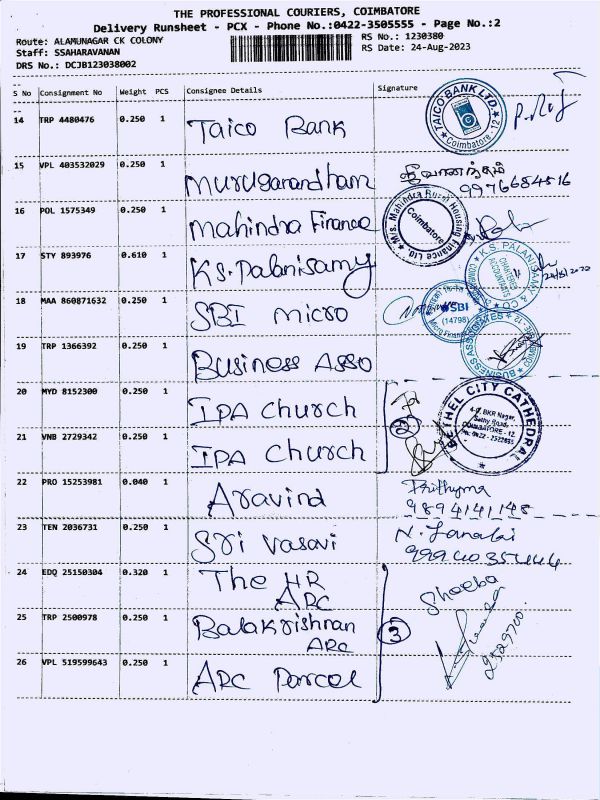 THE PROFESSIONAL COURIERS, COIMBATORE
Delivery Runsheet - PCX - Phone No.:0422-3505555 - Page No.:2
Route: ALAMUNAGAR CK COLONY RS No.: 1230380
Staff: SSAHARAVANAN RS Date: 24-Aug-2023
DRS No.: DCJB123038002
S No Consignment No Weight PCS Consignee Details Signature
14 TRP 4480476 0.250 1 Taico Bank TAICO BANK LTD. Coimbatore - 12
15 VPL 403532029 0.250 1 Muruganandham 9976684516
16 POL 1575349 0.250 1 Mahindra Finance M/s. Mahindra Rural Housing Finance Ltd. Coimbatore
17 STY 893976 0.610 1 K.S. Palanisamy K.S. PALANISAMY & CO CHARTERED ACCOUNTANTS
18 MAA 860871632 0.250 1 SBI micro SBI (14798)
19 TRP 1366392 0.250 1 Business Asso BUSINESS ASSOCIATES
20 MYD 8152300 0.250 1 IPA Church BETHEL CITY CATHEDRAL
BKR Nagar,
Sathy Road,
COIMBATORE - 12.
21 VNB 2729342 0.250 1 IPA Church
22 PRO 15253981 0.040 1 Aravind
9894141148
23 TEN 2036731 0.250 1 Sri Vasavi
24 EDQ 25150304 0.320 1 The HR
ARC Sheeba
25 TRP 2500978 0.250 1 Balakrishnan
ARC 3
26 VPL 519599643 0.250 1 ARC Parcel